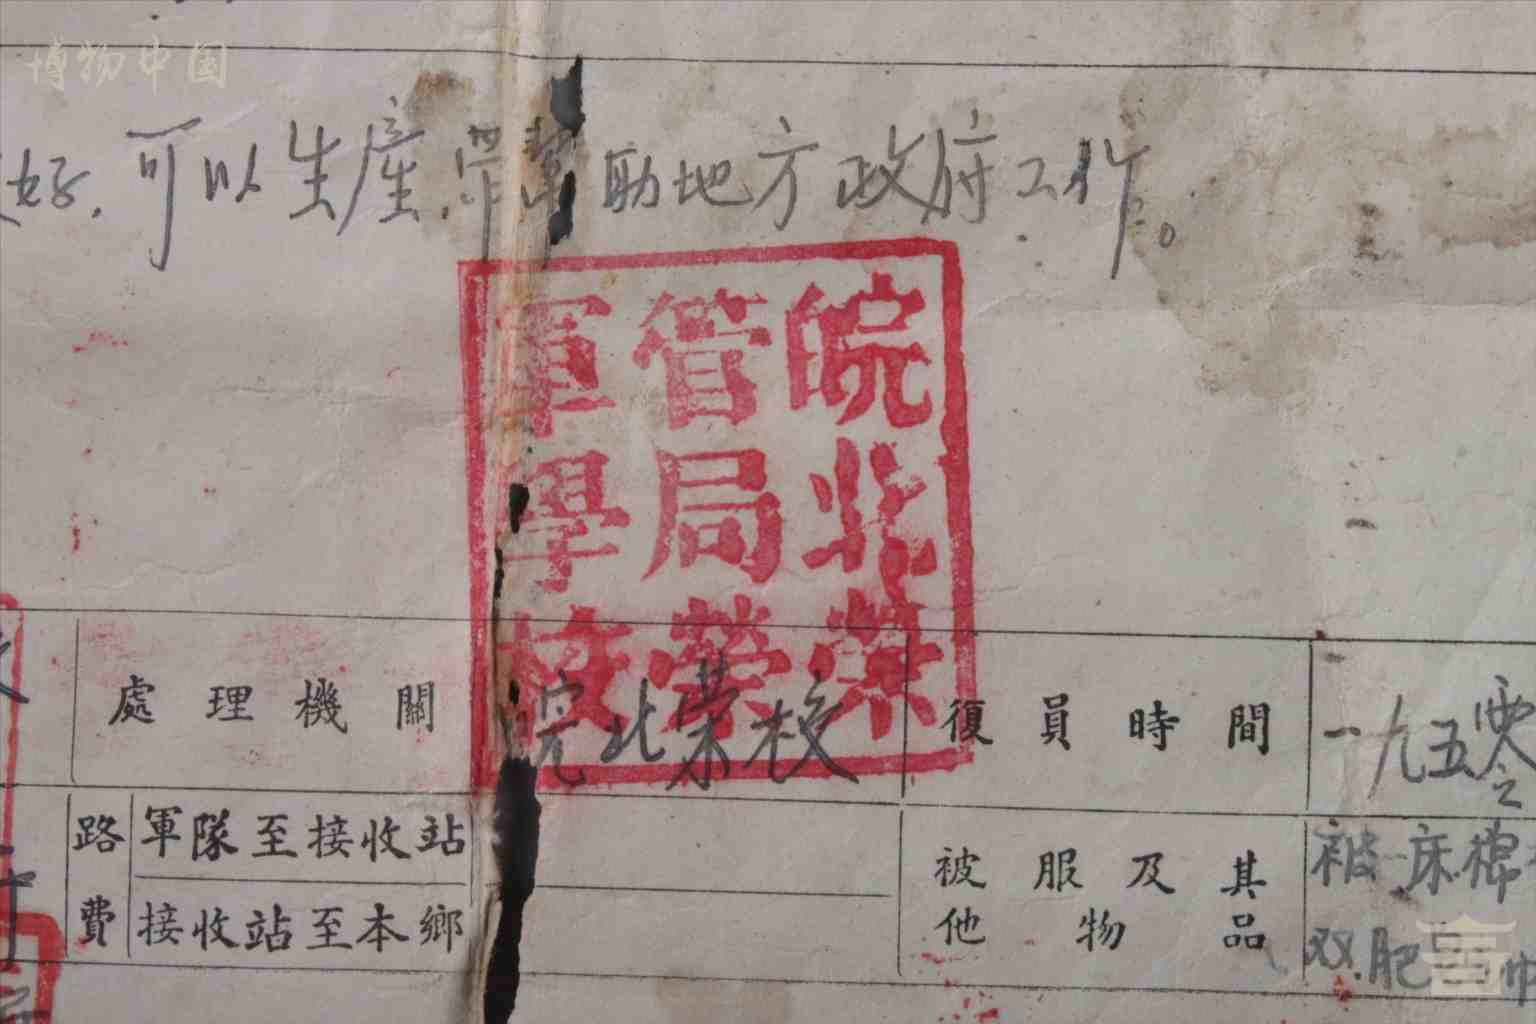 博物中国
好.可以生產.帮幫助地方政府工作。
皖北榮
管局榮
軍學校
處理機關
皖北荣校
復員時間
一九五零
路費
軍隊至接收站
接收站至本鄉
被服及其他物品
被一床棉
双.肥皂